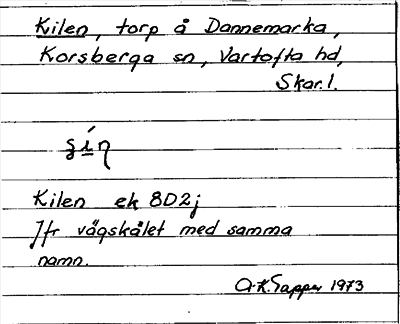 Kilen, torp å Dannemarka,
Korsberga sn, Vartofta hd,
Skar.l.
Kilen ek 8D2j
Jfr vägskälet med samma
namn.
A-K. Tapper 1973